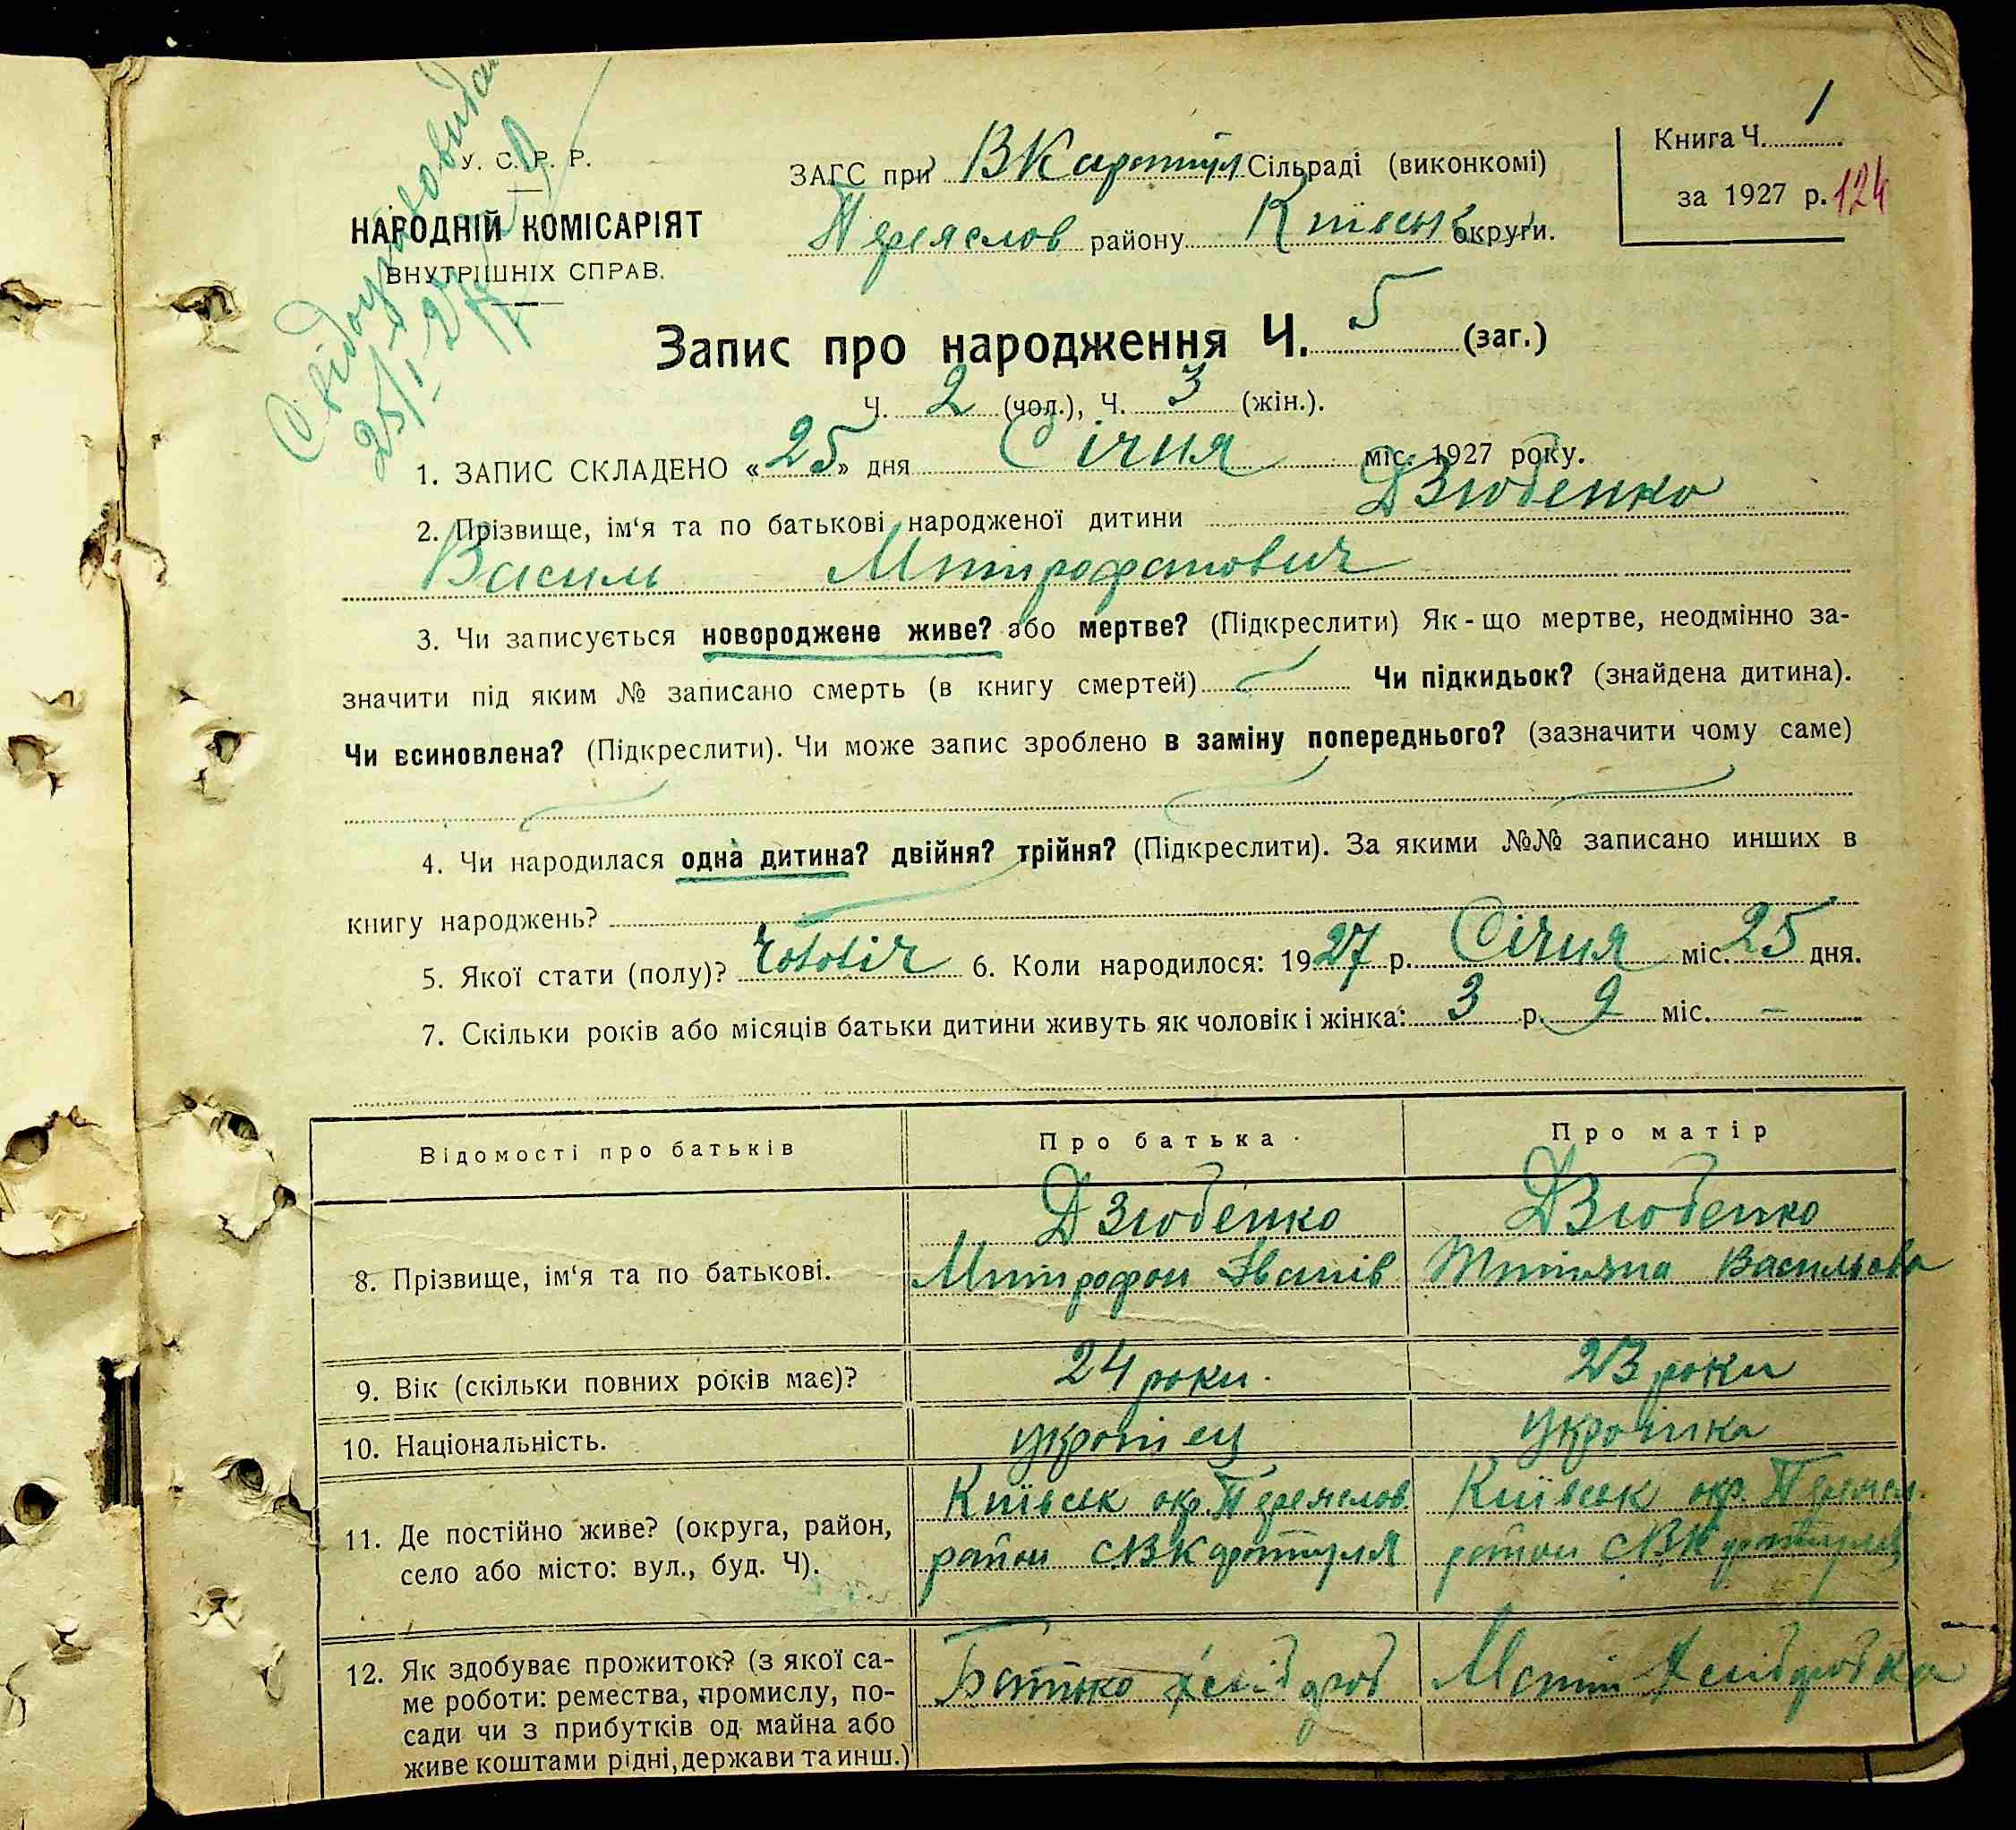 У. С. Р. Р.
НАРОДНІЙ КОМІСАРІЯТ
ВНУТРІШНІХ СПРАВ.
25/I 27
ЗАГС при В Каратул Сільраді (виконкомі)
Переяслов району Київськ округи.
Книга Ч. 1
за 1927 р. 124
Запис про народження Ч. 5 (заг.)
Ч. 2 (чол.), Ч. 3 (жін.).
1. ЗАПИС СКЛАДЕНО «25» дня Січня міс. 1927 року.
2. Прізвище, ім'я та по батькові народженої дитини Дзюбенко
Василь Митрофанович
3. Чи записується новороджене живе? або мертве? (Підкреслити) Як-що мертве, неодмінно за-
значити під яким № записано смерть (в книгу смертей) Чи підкидьок? (знайдена дитина).
Чи всиновлена? (Підкреслити). Чи може запис зроблено в заміну попереднього? (зазначити чому саме)
4. Чи народилася одна дитина? двійня? трійня? (Підкреслити). За якими №№ записано инших в
книгу народжень?
5. Якої стати (полу)? 6. Коли народилося: 1927 р. Січня міс. 25 дня.
7. Скільки років або місяців батьки дитини живуть як чоловік і жінка: 3 р. 9 міс. –
Відомості про батьків Про батька Про матір
8. Прізвище, ім'я та по батькові.
Дзюбенко
Митрофан Іванів
Дзюбенко
Васильева
9. Вік (скільки повних років має)? 24 роки. 23 роки
10. Національність. украінец украінка
11. Де постійно живе? (округа, район,
село або місто: вул., буд. Ч).
Київськ окр. Переяслов
район с В Каратуля
Київськ окр. Переясл.
район с В Каратуля
12. Як здобуває прожиток? (з якої са-
ме роботи: ремества, промислу, по-
сади чи з прибутків од майна або
живе коштами рідні, держави та инш.)
Батько хлібороб
Мати хліборобка